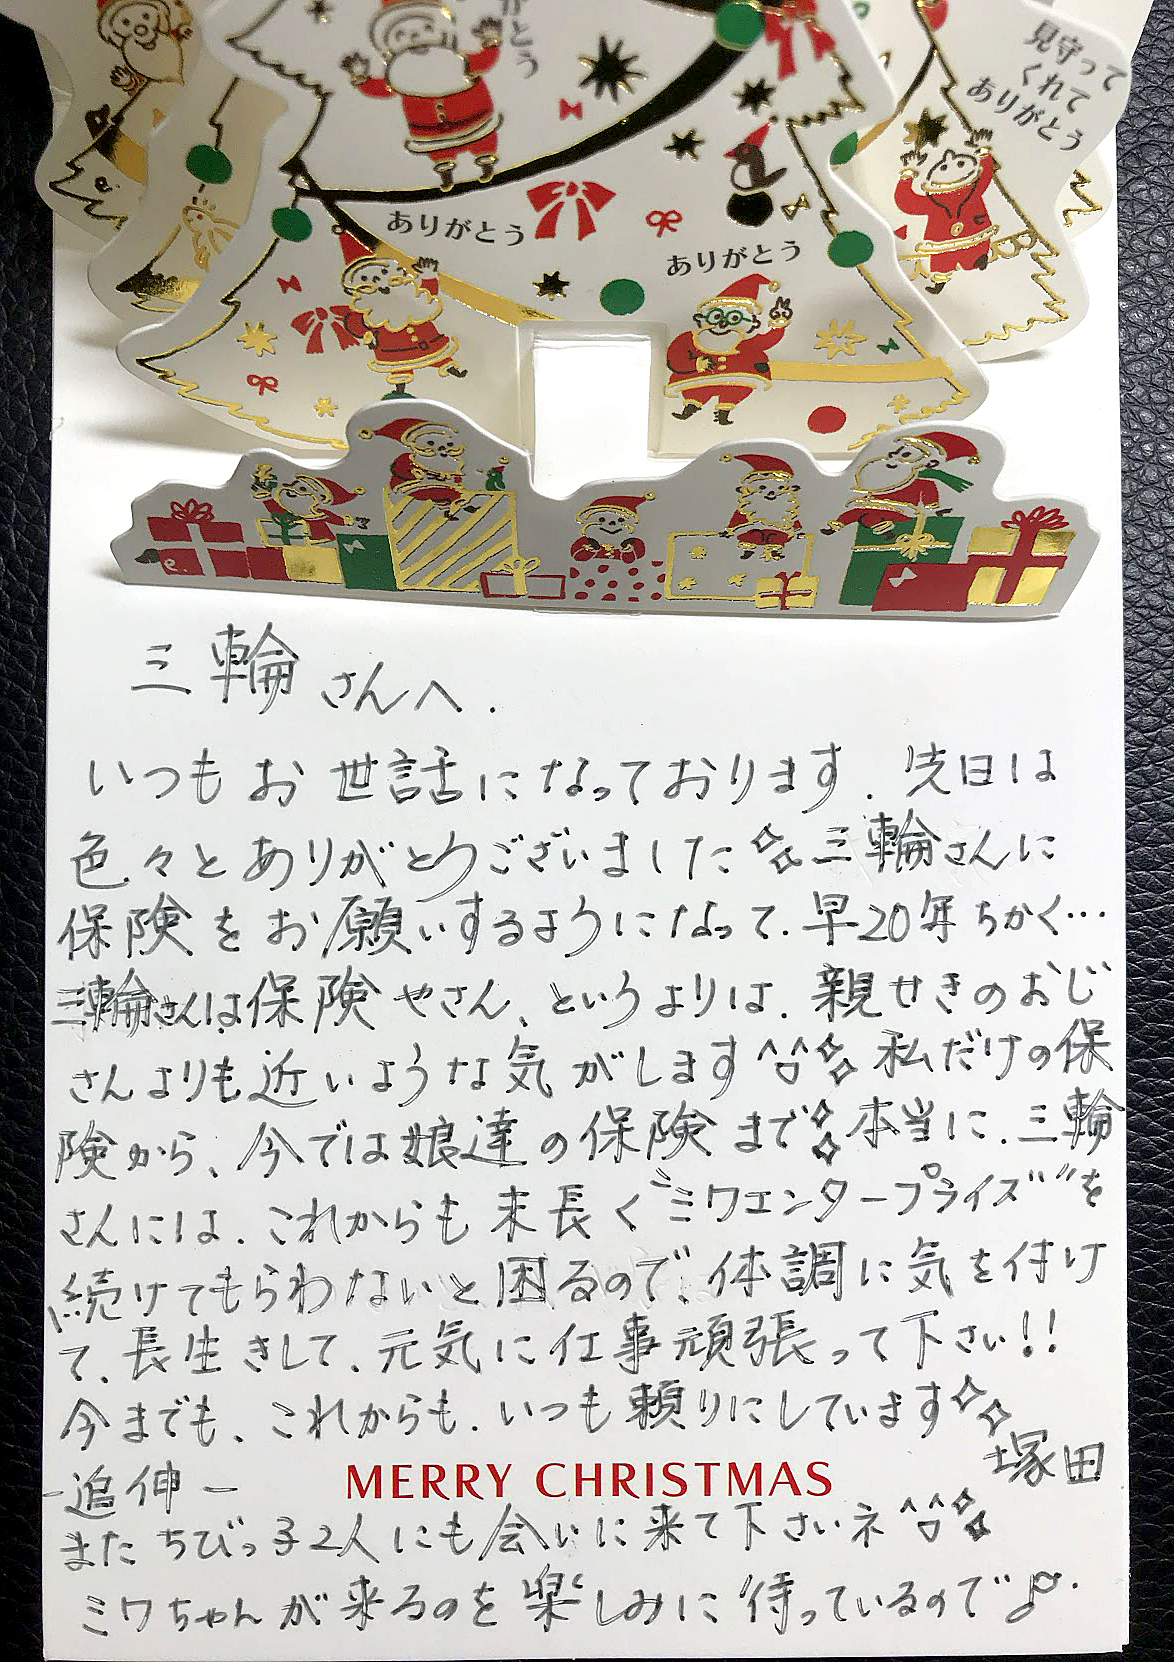 がとう
見守って
くれて
ありがとう
ありがとう
ありがとう
三輪さんへ.
いつもお世話になっております. 先日は
色々とありがとうございました 三輪さんに
保険をお願いするようになって. 早20年ちかく…
三輪さんは保険やさん、というよりは. 親せきのおじ
さんよりも近いような気がします^^ 私だけの保
険から、今では娘達の保険まで 本当に. 三輪
さんには. これからも末長く"ミワエンタープライズ"を
続けてもらわないと困るので、体調に気を付け
て. 長生きして. 元気に仕事頑張って下さい!!
今までも、これからも. いつも頼りにしています
塚田
MERRY CHRISTMAS
-追伸-
またちびっ子2人にも会いに来て下さいネ^^
ミワちゃんが来るのを楽しみに待っているので♪.